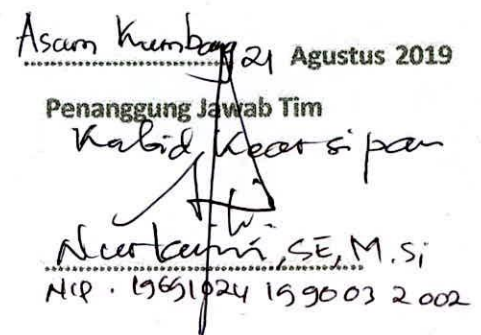 Asam Kumbang 21 Agustus 2019
Penanggung Jawab Tim
Kabid Kearsipan
SE, M.Si
NIP. 19691024 199003 2 002